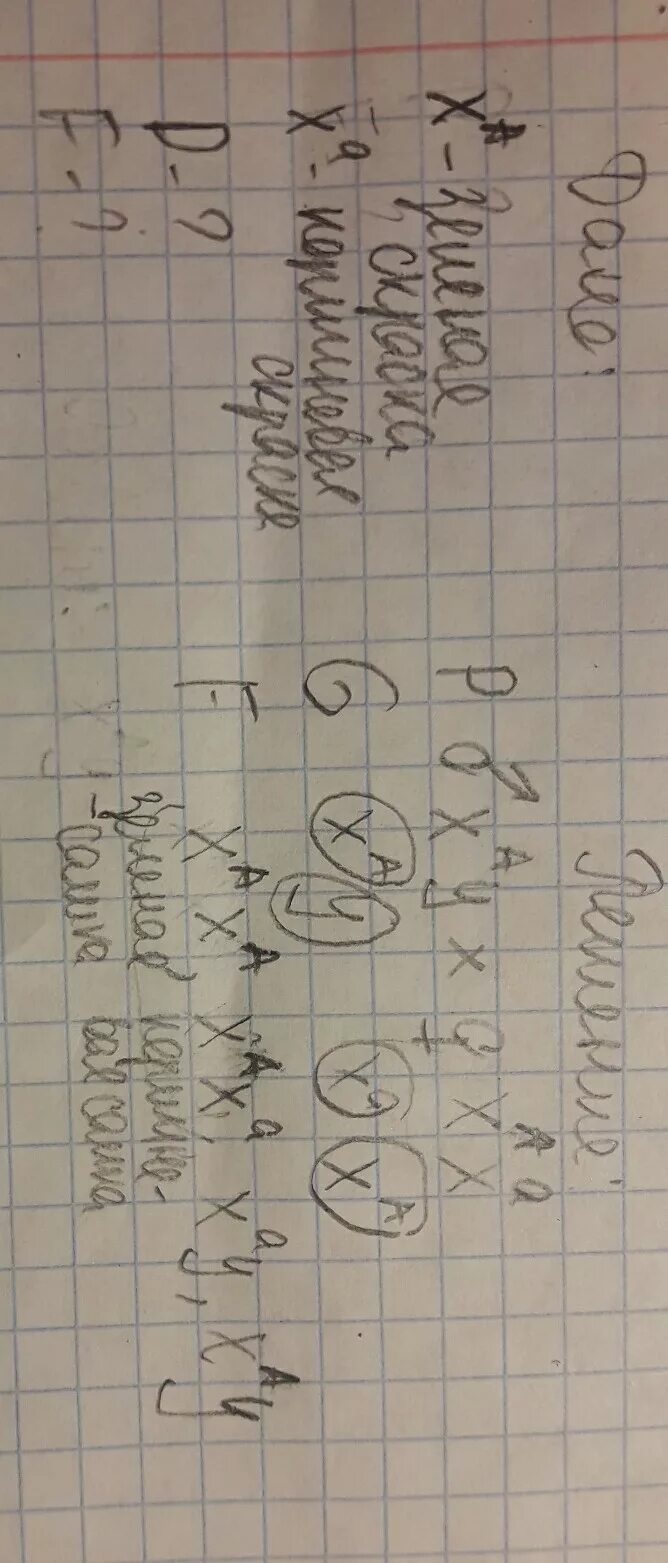 Дано:
X^A - зеленая
окраска
X^a - коричневая
окраска
D - ?
F - ?
Решение:
P ♂ X^A y x ♀ X^A X^a
G X^A y X^a X^A
F X^A X^A X^A X^a, X^a y, X^A y
зеленая коричне-
- самка вая самка